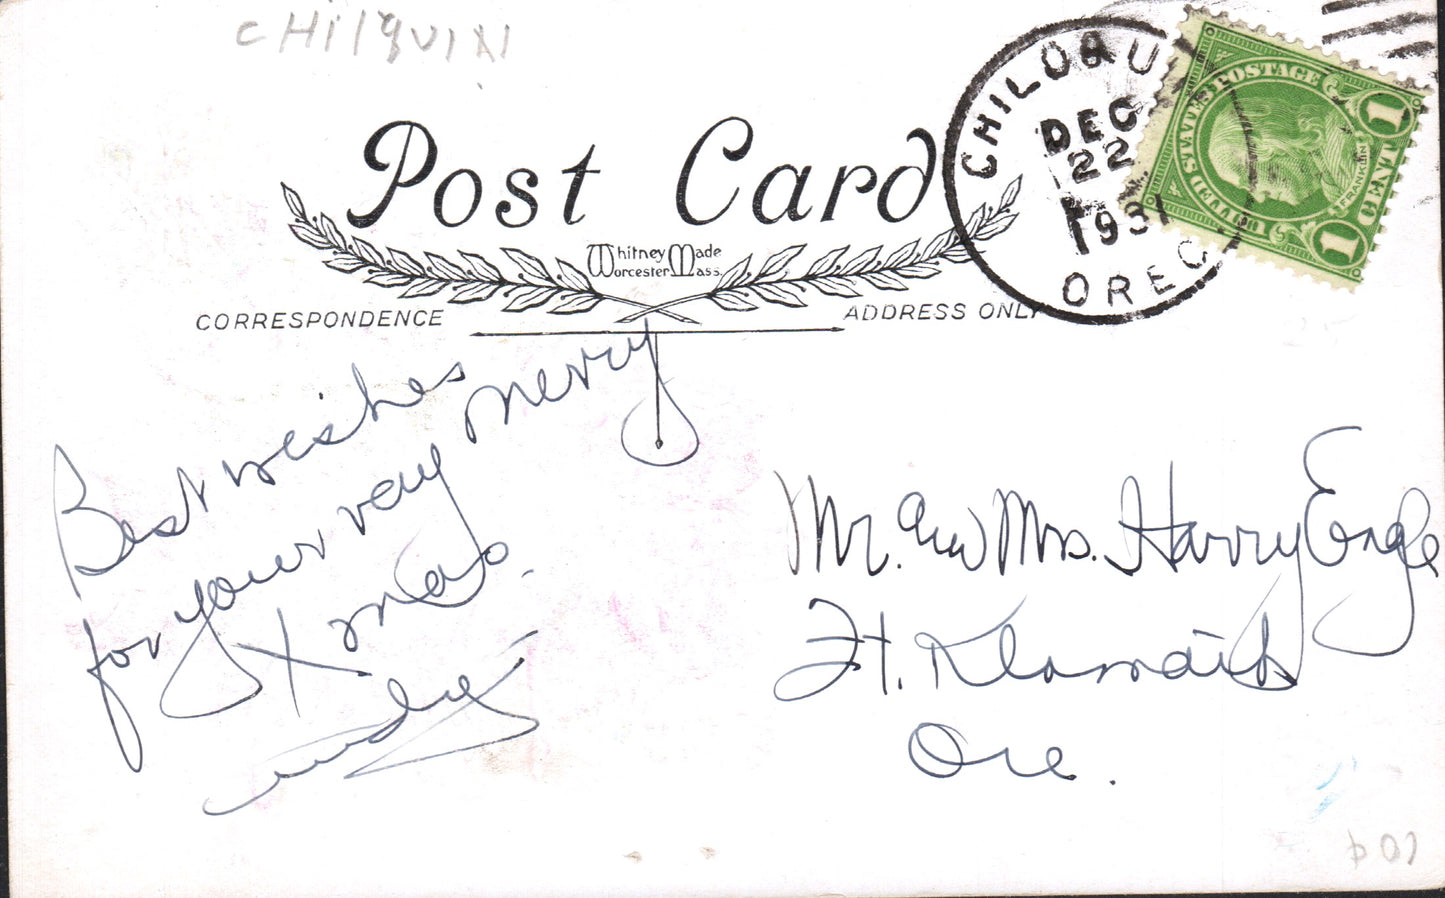 CHILQUIN
Post Card
Whitney Made
Worcester Mass.
CORRESPONDENCE
ADDRESS ONLY
CHILOQUI
DEC
22
1931
OREG.
UNITED STATES POSTAGE
FRANKLIN
1 CENT 1
Best wishes
for your very merry
Xmas.
Mr. and Mrs. Harry Engle
Ft. Klamath
Ore.